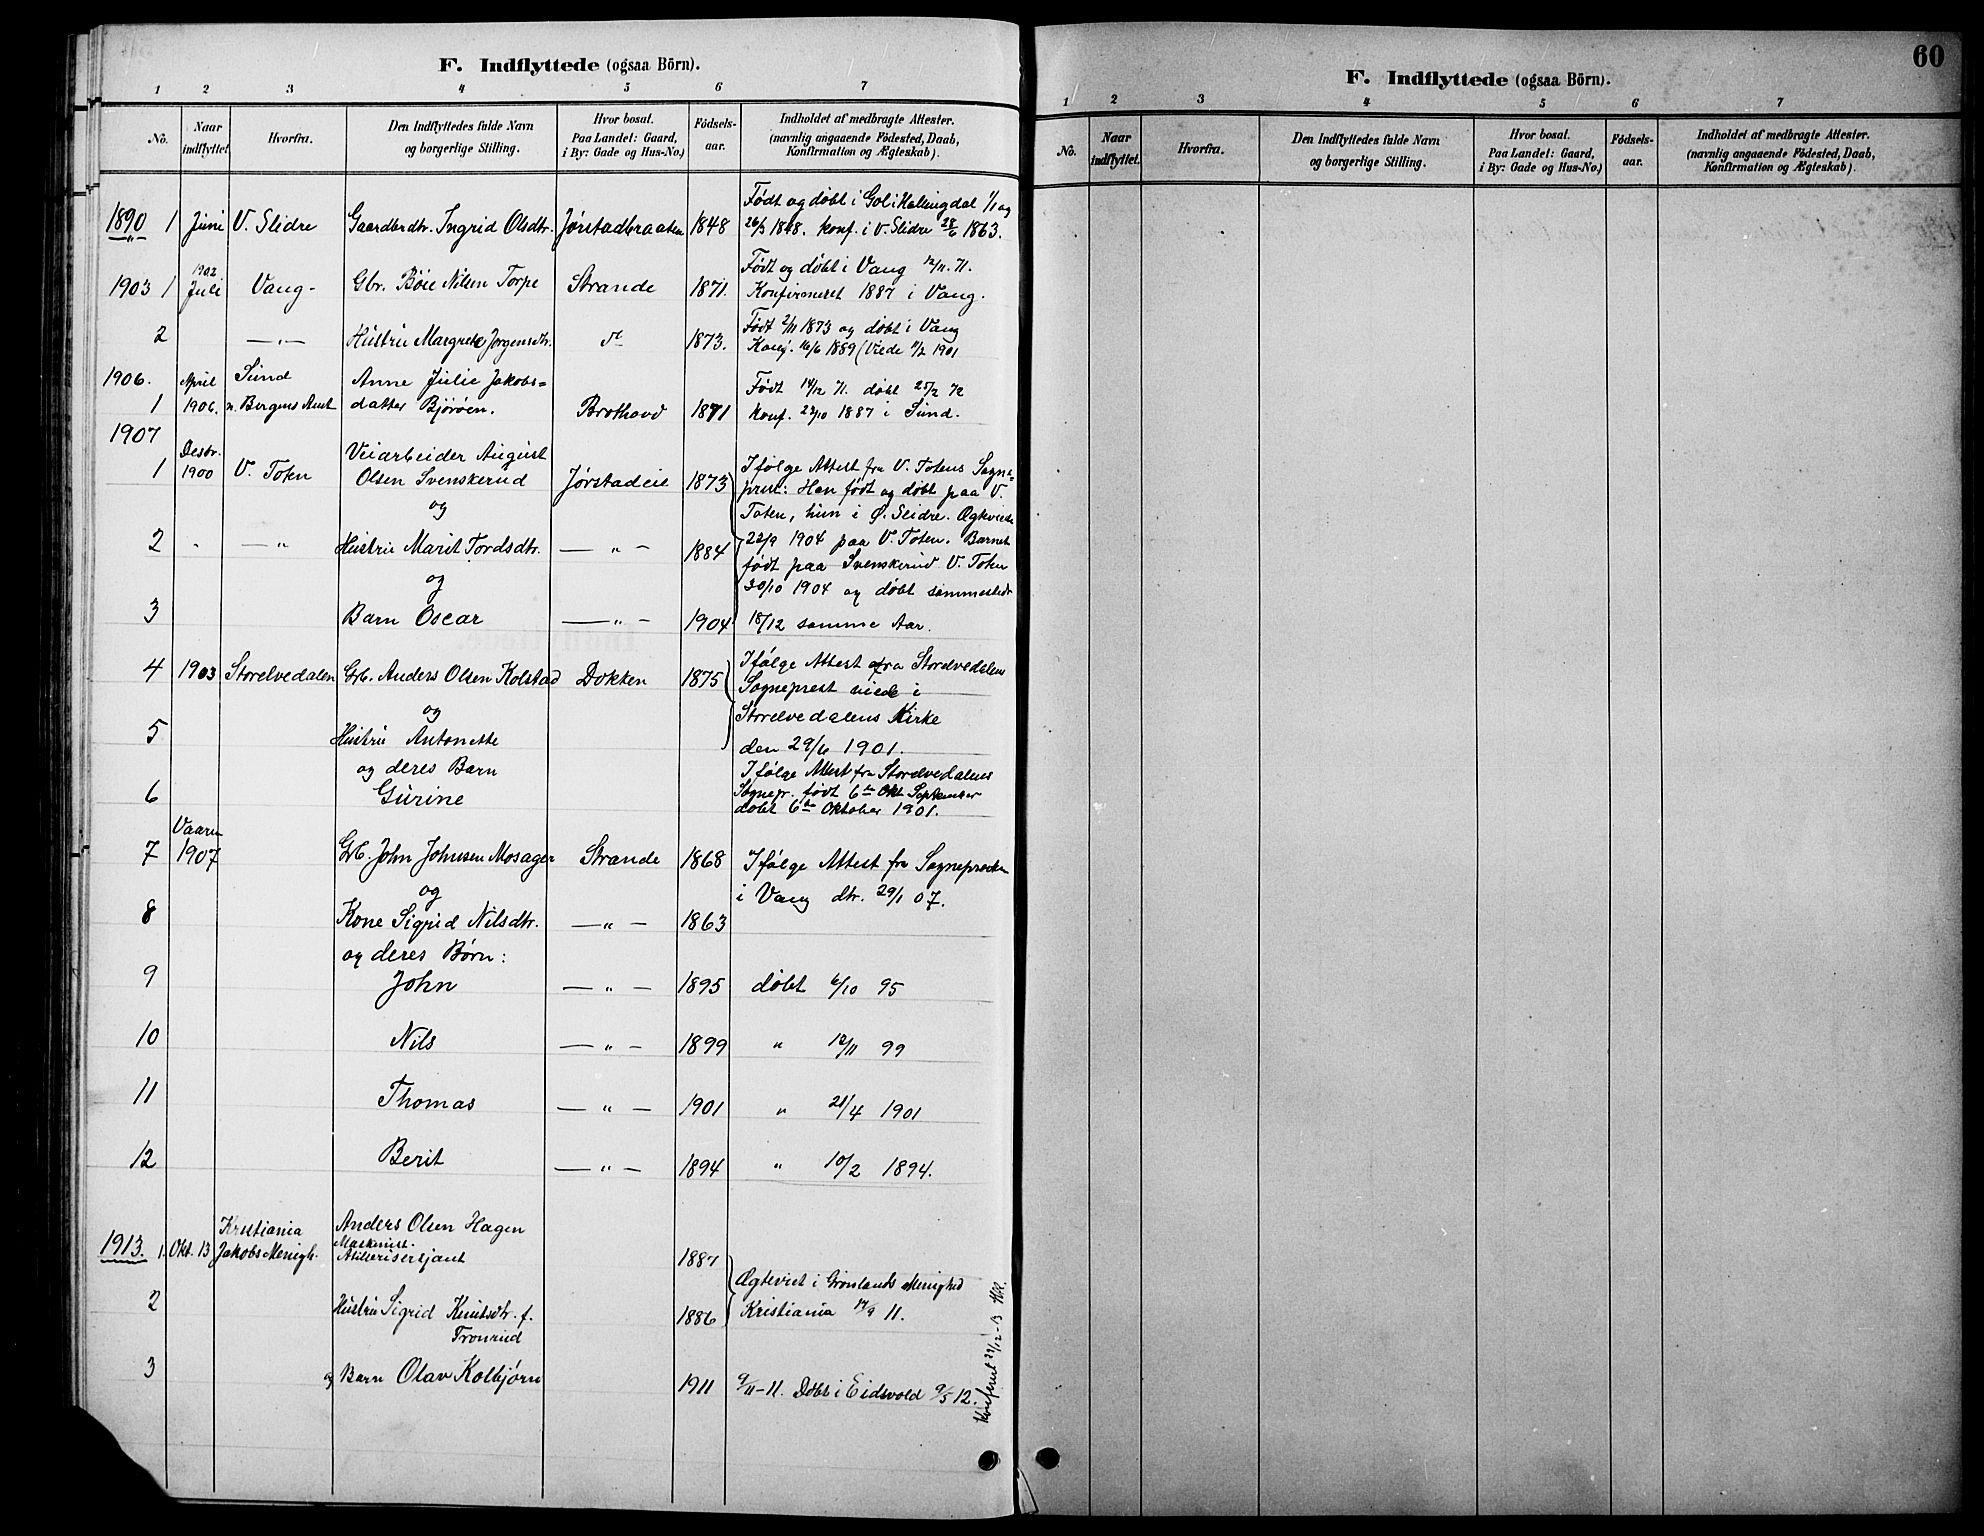 F. Indflyttede (ogsaa Börn).
1 2 3 4 5 6 7
No. Naar indflyttet. Hvorfra. Den Indflyttedes fulde Navn og borgerlige Stilling. Hvor bosat. Paa Landet: Gaard, i By: Gade og Hus-No.) Födsels-aar. Indholdet af medbragte Attester. (navnlig angaaende Födested, Daab, Konfirmation og Ægteskab).
1890 1 Juni V. Slidre Gaardbrdtr. Ingrid Olsdtr. Jørstadbraaten 1848 Født og døbt i Gol i Hallingdal 1/1 og
26/3 1848. konf. i V. Slidre 28/6 1863.
1903 1 1902 Juli Vang - Gbr. Böie Nilsen Torpe Strande 1871. Født og døbt i Vang 12/11. 71.
Konfirmeret 1887 i Vang.
2 — „ — Hustru Margrete Jørgensdtr. 1873. Født 2/11 1873 og døbt i Vang
Konf. 16/6 1889 (Viede 11/2 1901
1906. 1 April 1906. Sund n. Bergens Amt Anne Julie Jakobs=
datter Björöen. Brothovd 1871 Født 14/12 71. døbt 25/2 72
Konf. 23/10 1887 i Sund.
1907
1 Desbr. 1900 V. Toten Veiarbeider August
Olsen Svenskerud Jørstadeie 1873
og
2 - — „ Hustru Marit Tordsdtr. — „ — 1884
og
3 Barn Oscar — „ — 1904
Ifølge Attest fra V. Totens Sogne=
prest: Han født og døbt paa V.
Toten, hun i Ø. Slidre. Ægtviede
22/9 1904 paa V. Toten. Barnet
født paa Svenskerud V. Toten
30/10 1904 og døbt sammesteds
18/12 samme Aar.
4 1903 Storelvedalen Grb. Anders Olsen Kolstad Dokken 1875
og
5 Hustru Antonette
og deres Barn
6 Gurine
Ifølge Attest fra Storelvedalens
Sogneprest viede i
Storelvedalens Kirke
den 29/6 1901.
Ifølge Attest fra Storelvedalens
Sognepr. født 6te Okt September
døbt 6te Oktober 1901.
7 Vaaren 1907 Grb. John Johnsen Mosager Strande 1868 Ifølge Attest fra Sognepresten
og
i Vang dtr. 29/1 07.
8 Kone Sigrid Nilsdtr. — „ — 1863
og deres Børn:
9 John — „ — 1895 døbt 6/10 95
10 Nils — „ — 1899 „ 12/11 99
11 Thomas — „ — 1901 „ 21/4 1901
12 Berit — „ — 1894 „ 10/2 1894.
1913. 1. Okt. 13 Kristiania Jakobs Menigh. Anders Olsen Hagen
Maskinist.
Artillerisersjant 1887
2 Hustru Sigrid Knutsdtr. f.
Tronrud 1886
Ægteviet i Grønlands Menighed
Kristiania 17/9 11.
3 og Barn Olav Kolbjørn 1911 9/11-11. Døbt i Eidsvold 9/5 12.
60
F. Indflyttede (ogsaa Börn).
1 2 3 4 5 6 7
No. Naar indflyttet. Hvorfra. Den Indflyttedes fulde Navn og borgerlige Stilling. Hvor bosat. Paa Landet: Gaard, i By: Gade og Hus-No.) Födsels-aar. Indholdet af medbragte Attester. (navnlig angaaende Födested, Daab, Konfirmation og Ægteskab).